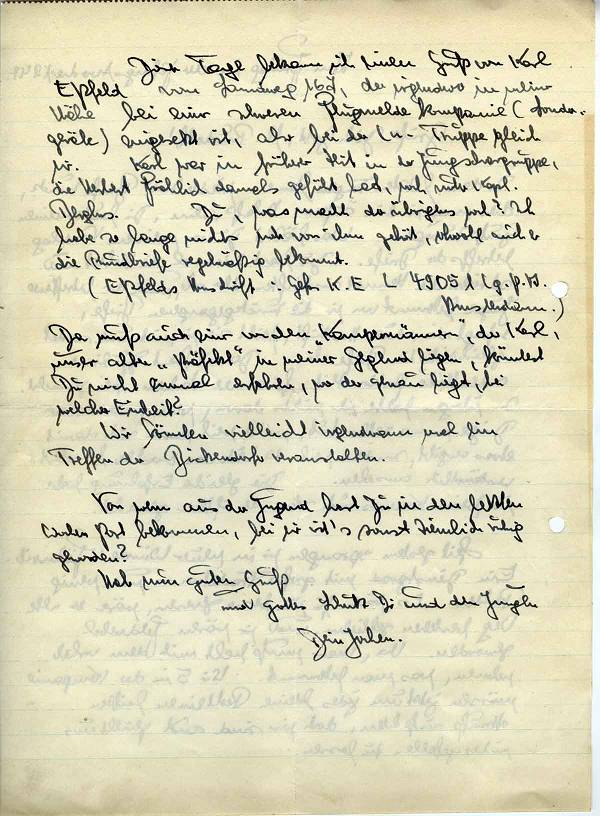 Diese Tage bekam ich einen Gruß von Karl
Epfeld vom Sandweg 16d, der irgendwo in meiner
Nähe bei einer schweren Flugmelde Kompanie (Sonder-
geräte) eingesetzt ist, also bei der Ln-Truppe gleich
mir. Karl war in früherer Zeit in der Jungschargruppe,
die Herbert Fröhlich damals geführt hat, noch unter Kapl.
Berghs. Du, was macht der übrigens noch? Ich
habe so lange nichts mehr von ihm gehört, obwohl auch er
die Rundbriefe regelmäßig bekommt.
(Epfelds Anschrift: Gefr. K. E L 49051 Lg.P.A.
Amsterdam.)
Da muß auch einer von den „Kampfmännern", der Karl,
unser alter „Präfekt" in meiner Gegend liegen, könntest
Du nicht einmal erfahren, wo der genau liegt, bei
welcher Einheit?
Wir könnten vielleicht irgendwann mal ein
Treffen der Bickendorfer veranstalten.
Von wem aus der Jugend hast Du in den letzten
Wochen Post bekommen, bei mir ist's sonst ziemlich ruhig
geworden?
Hab nun guten Gruß
und Gottes Schutz Dir und den Jungen
Dein Jochen.